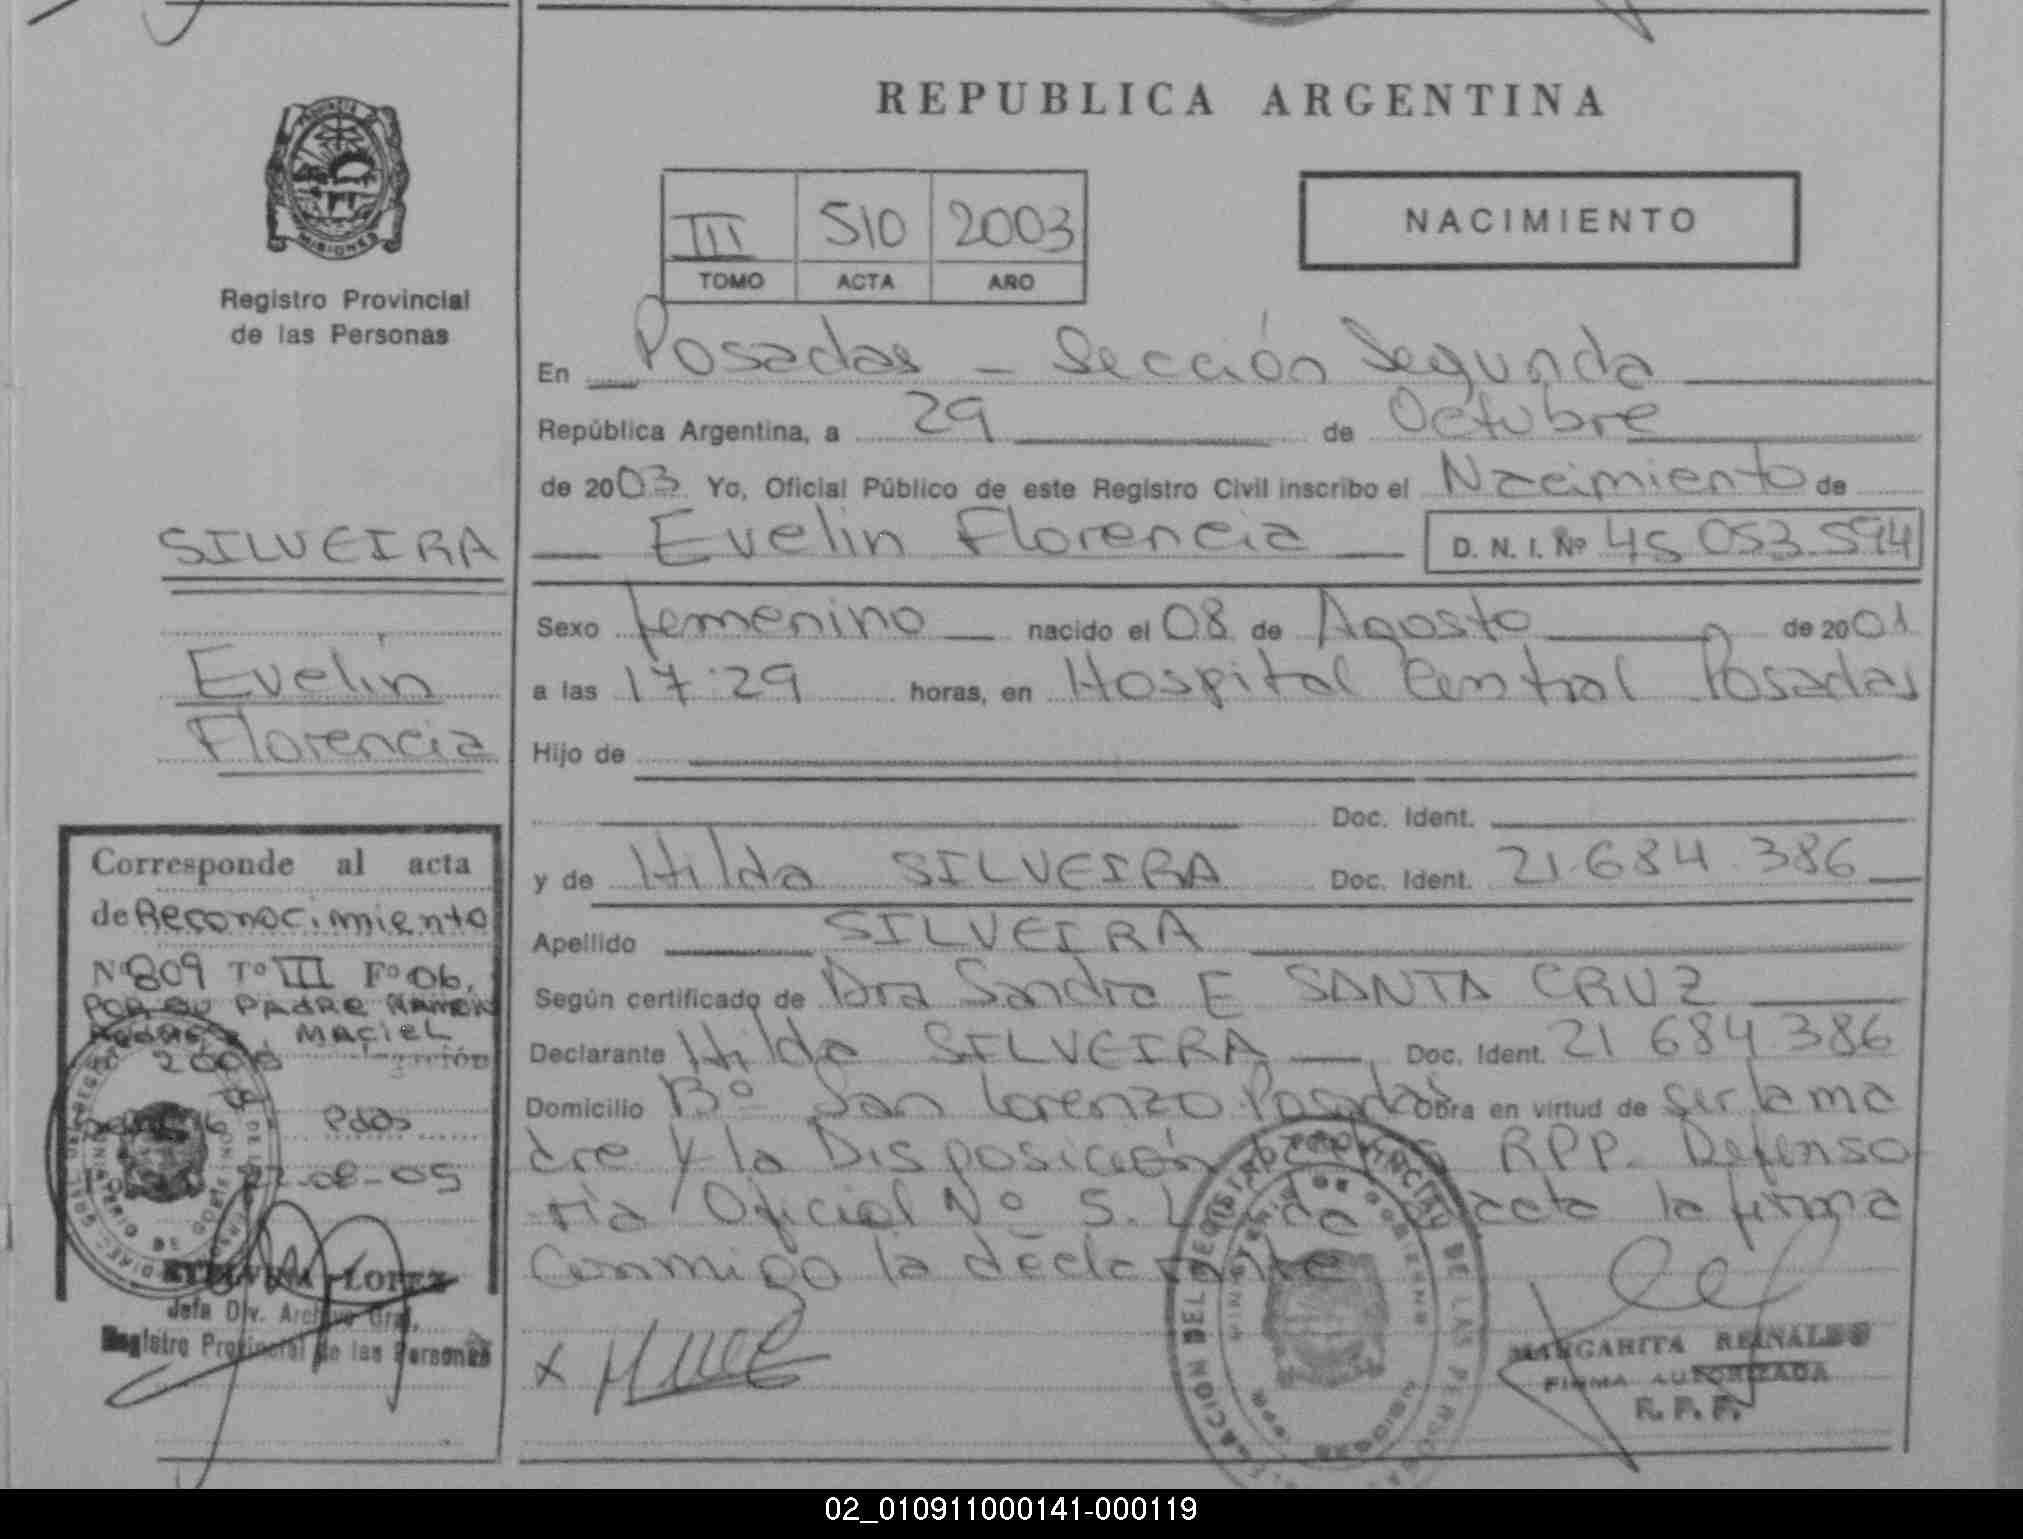 REPUBLICA ARGENTINA
PROVINCIA
MISIONES
Registro Provincial
de las Personas
III 510 2003
TOMO ACTA AÑO
NACIMIENTO
En Posadas - Sección Segunda
República Argentina, a 29 de Octubre
de 2003 Yo, Oficial Público de este Registro Civil inscribo el Nacimiento de
Evelin Florencia D. N. I. Nº 45 053 594
SILVEIRA
Evelin
Florencia
Sexo femenino nacido el 08 de Agosto de 2001
a las 17:29 horas, en Hospital Central Posadas
Hijo de
Doc. Ident.
y de Hilda SILVEIRA Doc. Ident. 21.684.386
Apellido SILVEIRA
Según certificado de Dra Sandra E SANTA CRUZ
Declarante Hilda SILVEIRA Doc. Ident. 21 684 386
Domicilio Bº San Lorenzo Posadas Obra en virtud de ser la ma
dre y la Disposición RPP. Defenso
ría Oficial Nº 5. Leída acta la firma
conmigo la declarante
MARGARITA REINALDO
FIRMA AUTORIZADA
R. P. P.
Corresponde al acta
de Reconocimiento
Nº 809 Tº III Fº 06,
POR SU PADRE RAMON
MACIEL
Pdas
22-08-05
LOPEZ
Jefa Div. Archivo Gral.
Registro Provincial de las Personas
02_010911000141-000119